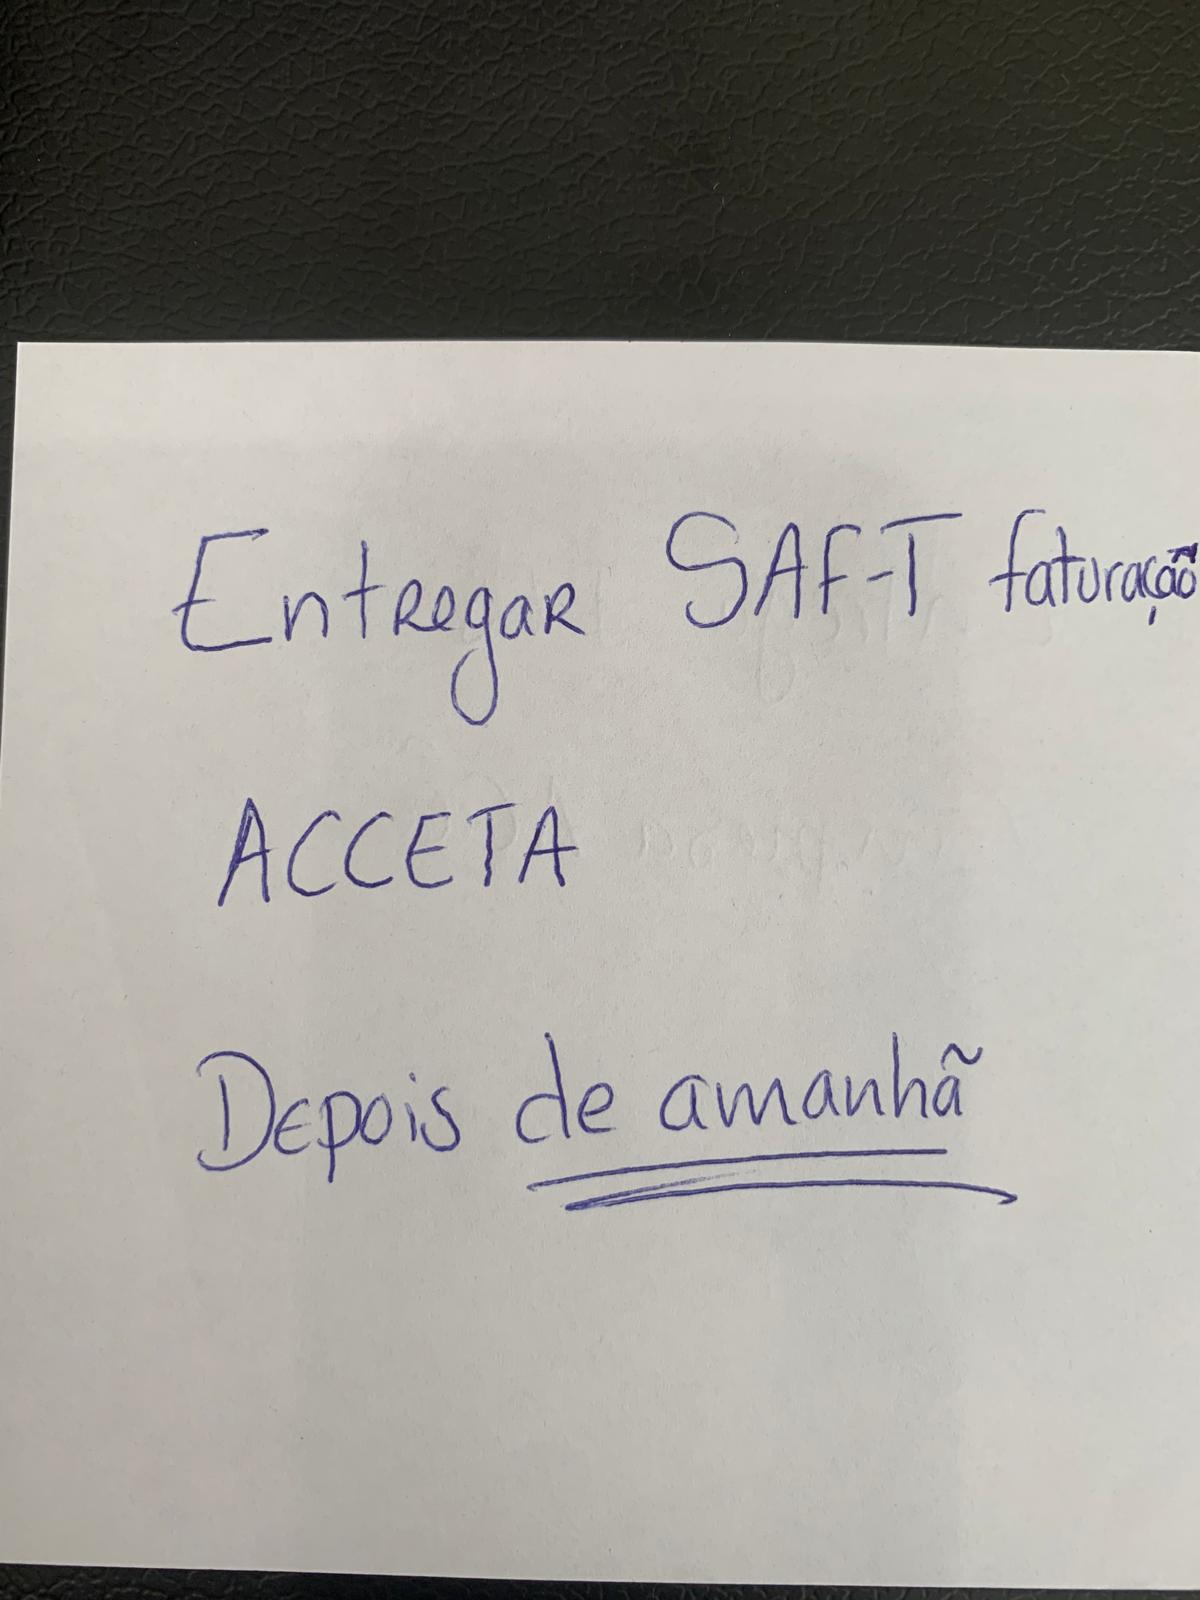 Entregar SAF-T faturação
ACCETA
Depois de amanhã